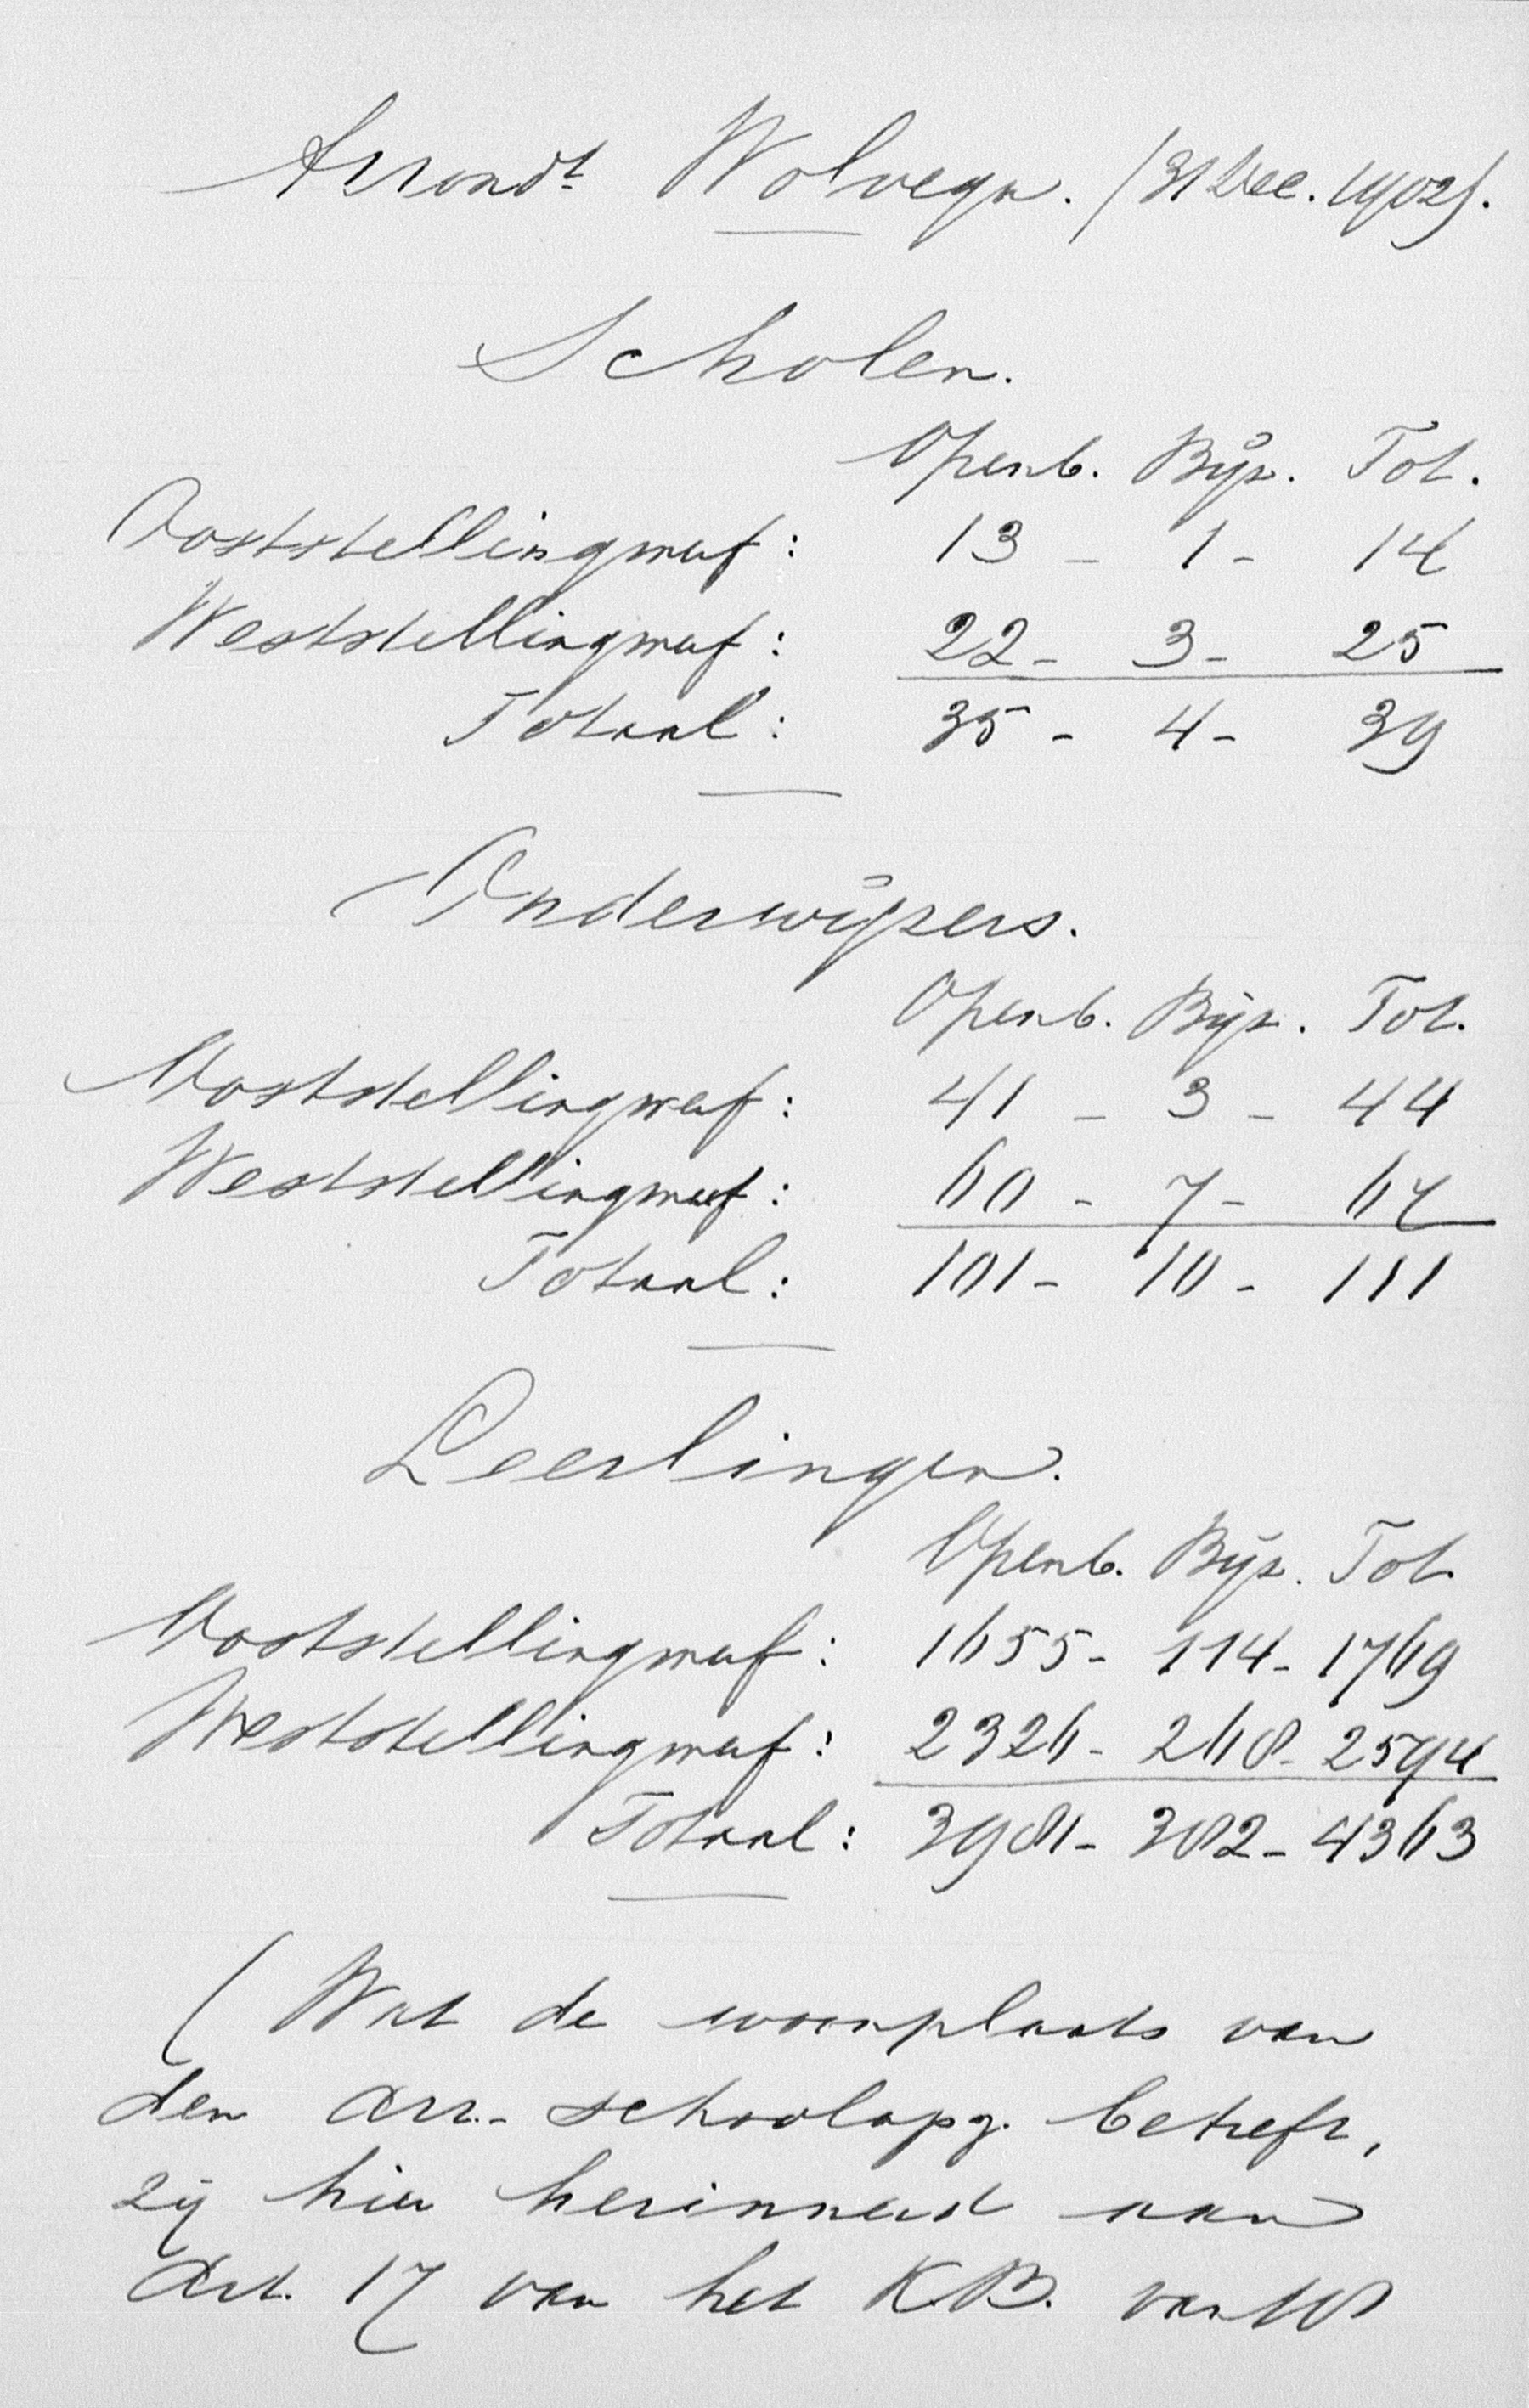 Arrondt Wolvega. (31 Dec. 1902).
Scholen.
Openb. Bijz. Tot.
Ooststellingwerf: 13 - 1 - 14
Weststellingwerf: 22 - 3 - 25
Totaal: 35 - 4 - 39
Onderwijzers.
Openb. Bijz. Tot.
Ooststellingwerf: 41 - 3 - 44
Weststellingwerf: 60 - 7 - 67
Totaal: 101 - 10 - 111
Leerlingen.
Openb. Bijz. Tot.
Ooststellingwerf: 1655 - 114 - 1769
Weststellingwerf: 2326 - 268 - 2594
Totaal: 3981 - 382 - 4363
(Wat de woonplaats van
den arr.- schoolopz. betreft,
zij hier herinnerd aan
Art. 17 van het K.B. van